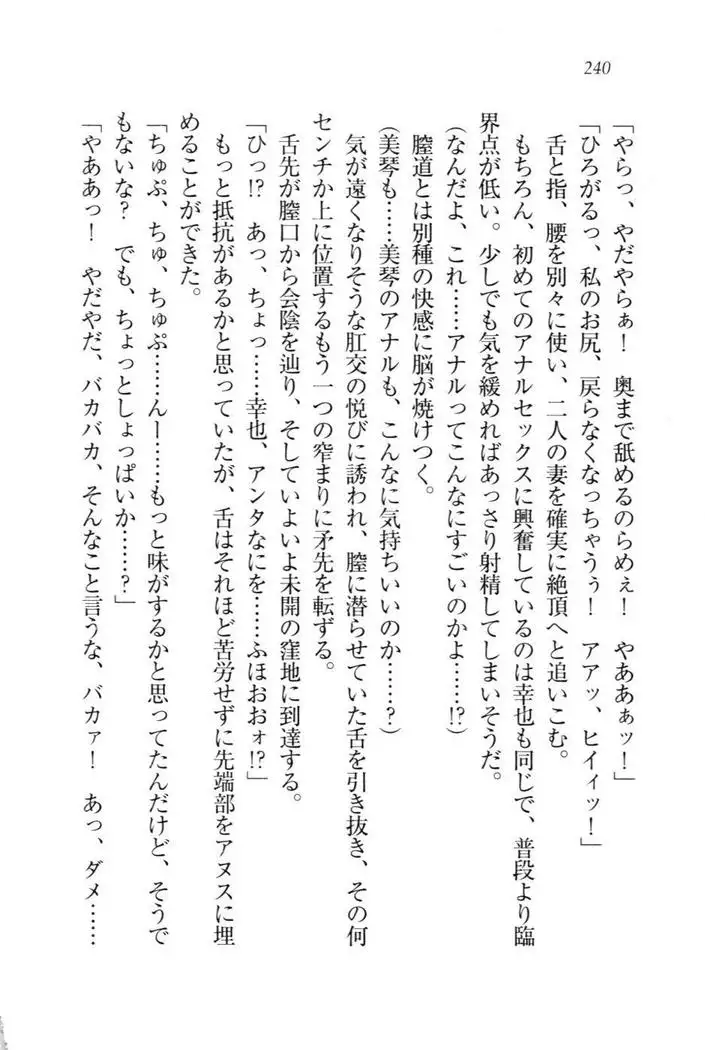 240
「やらっ、やだやらぁ！　奥まで舐めるのらめぇ！　やああぁッ！」
「ひろがるっ、私のお尻、戻らなくなっちゃうぅ！　アアッ、ヒイィッ！」
舌と指、腰を別々に使い、二人の妻を確実に絶頂へと追いこむ。
もちろん、初めてのアナルセックスに興奮しているのは幸也も同じで、普段より臨
界点が低い。少しでも気を緩めればあっさり射精してしまいそうだ。
(なんだよ、これ……アナルってこんなにすごいのかよ……!?)
膣道とは別種の快感に脳が焼けつく。
(美琴も……美琴のアナルも、こんなに気持ちいいのか……？)
気が遠くなりそうな肛交の悦びに誘われ、膣に潜らせていた舌を引き抜き、その何
センチか上に位置するもう一つの窄まりに矛先を転ずる。
舌先が膣口から会陰を辿り、そしていよいよ未開の窪地に到達する。
「ひっ!?　あっ、ちょっ……幸也、アンタなにを……ふほおおォ!?」
もっと抵抗があるかと思っていたが、舌はそれほど苦労せずに先端部をアヌスに埋
めることができた。
「ちゅぷ、ちゅ、ちゅぷ……んー……もっと味がするかと思ってたんだけど、そうで
もないな？　でも、ちょっとしょっぱいか……？」
「やああっ！　やだやだ、バカバカ、そんなこと言うな、バカァ！　あっ、ダメ……